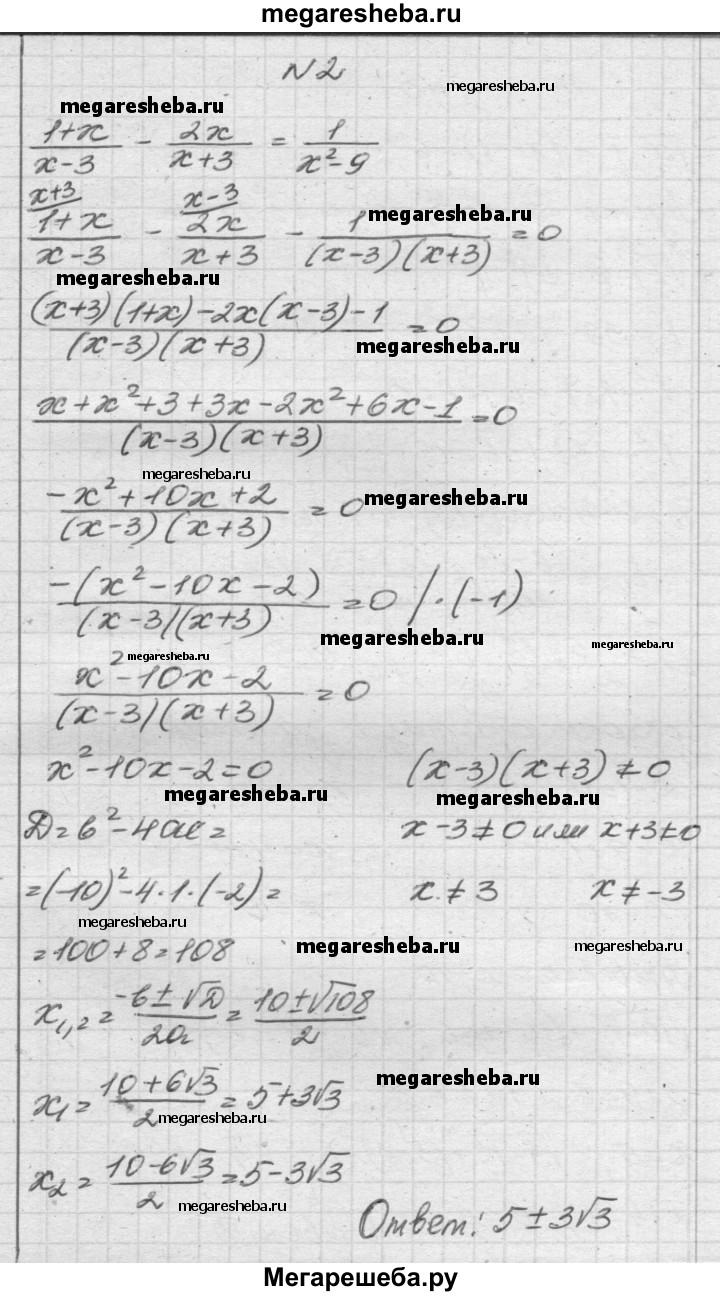 megaresheba.ru
N2
megaresheba.ru
megaresheba.ru
(1+x)/(x-3) - 2x/(x+3) = 1/(x²-9)
x+3 x-3
(1+x)/(x-3) - 2x/(x+3) - 1/((x-3)(x+3)) = 0
megaresheba.ru
megaresheba.ru
((x+3)(1+x)-2x(x-3)-1)/((x-3)(x+3)) = 0
megaresheba.ru
(x+x²+3+3x-2x²+6x-1)/((x-3)(x+3)) = 0
megaresheba.ru
(-x²+10x+2)/((x-3)(x+3)) = 0
megaresheba.ru
(-(x²-10x-2))/((x-3)(x+3)) = 0 /·(-1)
megaresheba.ru
megaresheba.ru
megaresheba.ru
(x²-10x-2)/((x-3)(x+3)) = 0
x²-10x-2=0 (x-3)(x+3)≠0
megaresheba.ru
megaresheba.ru
D=b²-4ac= x-3≠0 или x+3≠0
=(-10)²-4·1·(-2)= x≠3 x≠-3
megaresheba.ru
=100+8=108
megaresheba.ru
megaresheba.ru
x₁,₂ = (-b±√D)/2a = (10±√108)/2
megaresheba.ru
x₁ = (10+6√3)/2 = 5+3√3
megaresheba.ru
x₂ = (10-6√3)/2 = 5-3√3
megaresheba.ru
Ответ: 5±3√3
Мегарешеба.ру